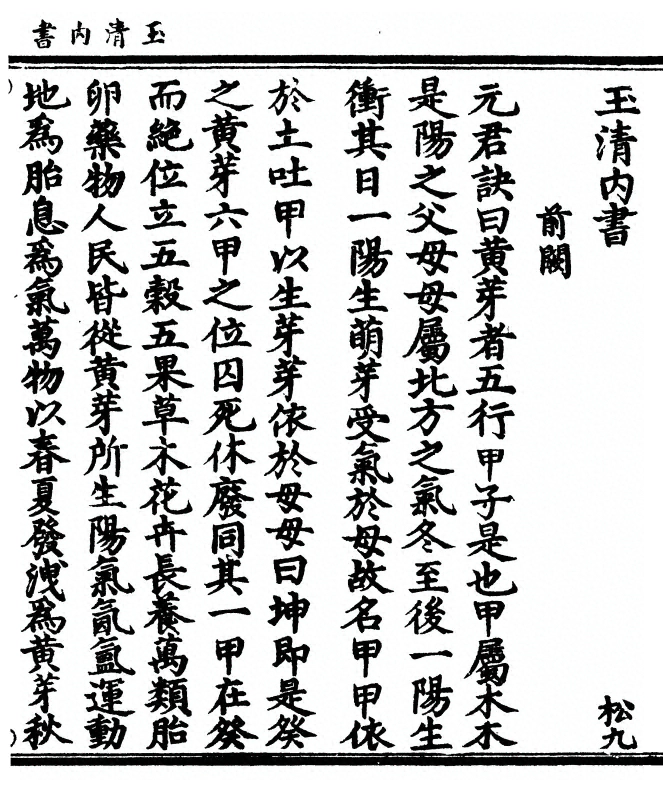 玉清内書
玉清内書
松九
前闕
元君訣曰黄芽者五行甲子是也甲屬木木
是陽之父母母屬北方之氣冬至後一陽生
衝其日一陽生萌芽受氣於母故名甲甲依
於土吐甲以生芽芽依於母母曰坤即是癸
之黄芽六甲之位囚死休廢同其一甲在癸
而絶位立五穀五果草木花卉長養萬類胎
卵藥物人民皆從黄芽所生陽氣氤氳運動
地爲胎息爲氣萬物以春夏發洩爲黄芽秋